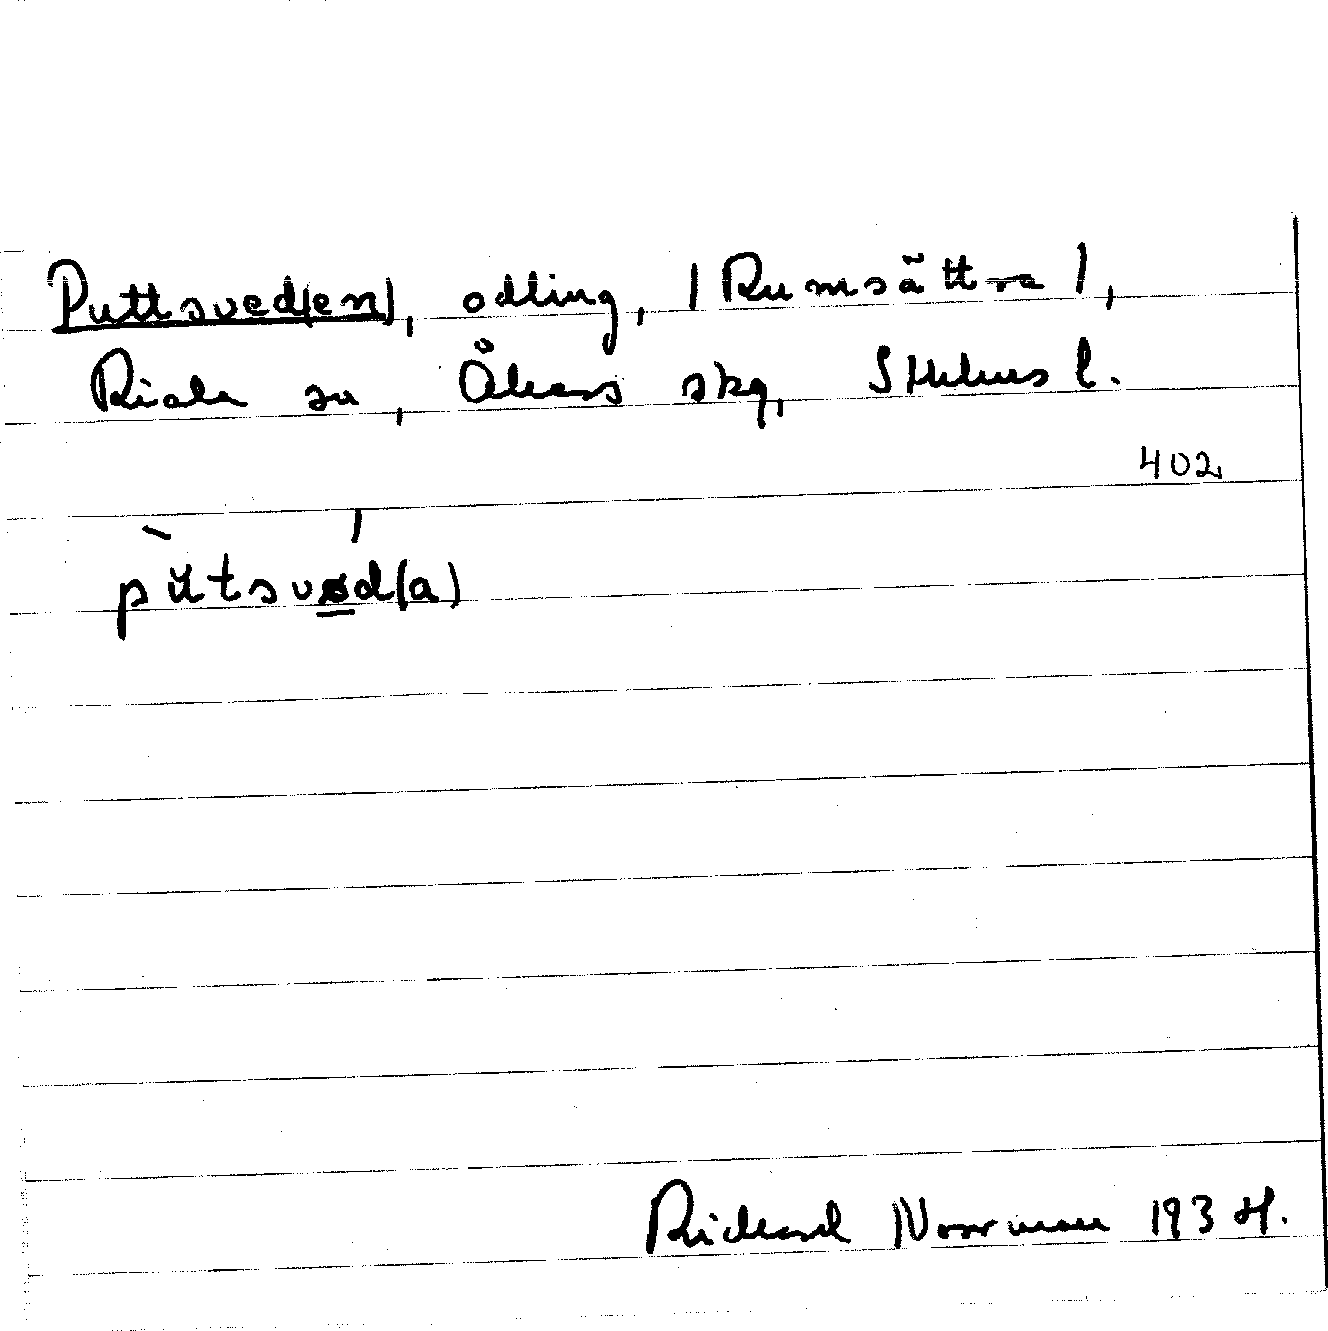 Puttsved(en), odling, (Rumsättra),
Riala sn, Åkers skg, Sthlms l.
402
pùtsvǿd(a)
Richard Norrman 1934.